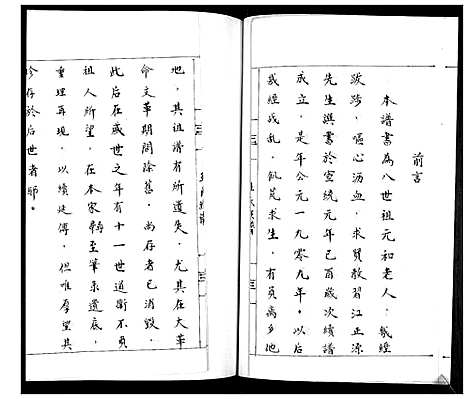 前言
本譜書爲八世祖元和老人，幾經
跋踄，嘔心沥血，求賢教習江正源
先生譔書於宣統元年己酉歲次續譜
成立，是年公元一九零九年。以后
幾經戎乱，飢荒求生，有負离乡地
地，其祖譜有所遺失，尤其在大革
命文革期間除舊，尚存者已消毁，
此后在或世之年有十一世道衛不負
祖人所望，在本家尋至筆录遺底，
重理再现，以續延傳，但唯厚望其
珍存於后世者耶。
三
三